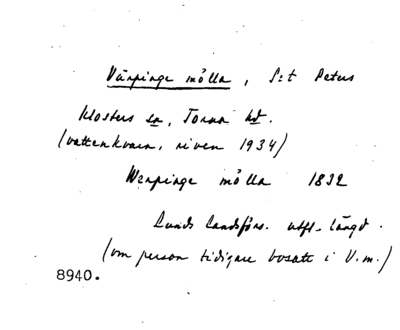 Värpinge mölla, S:t Peters
klosters sn, Torna hd.
(vattenkvarn, riven 1934)
Werpinge mölla 1832
Lunds Landsförs. utfl. längd.
(om person tidigare bosatt i V.m.)
8940.